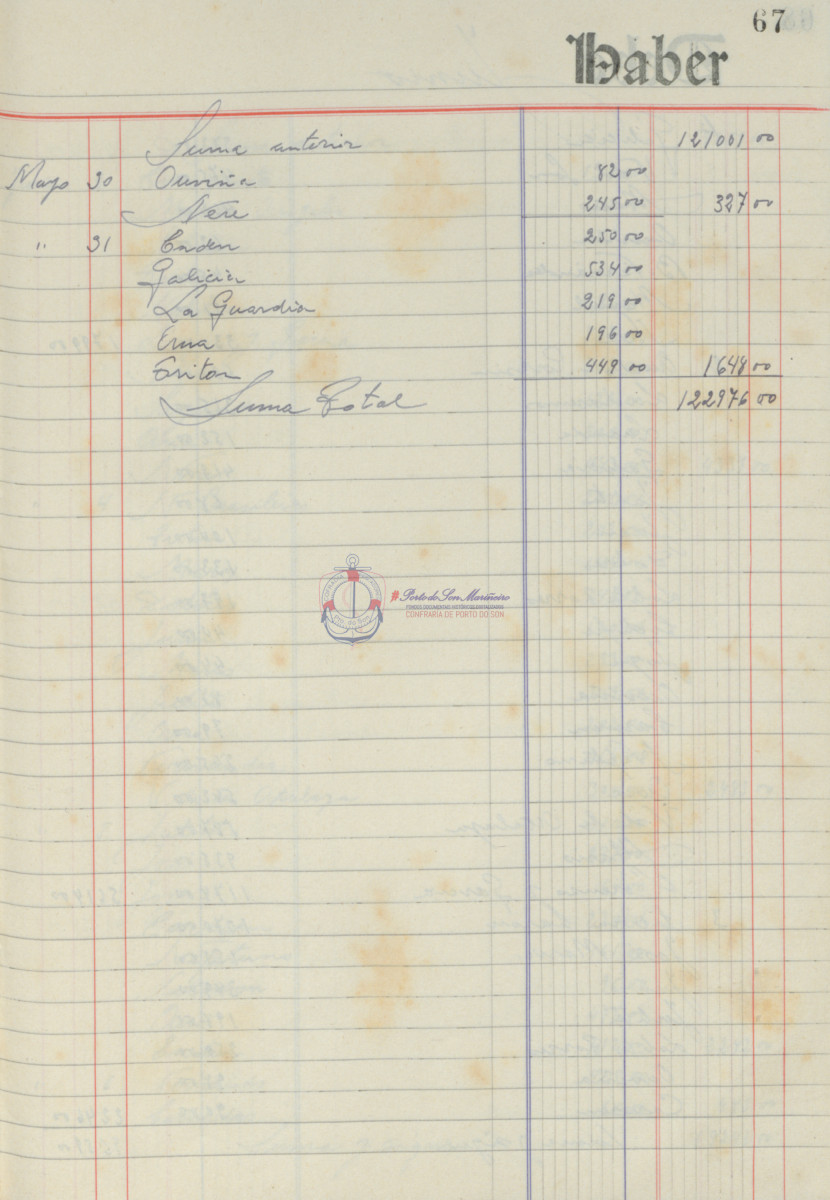 67
Haber
Suma anterior 121001 00
Mayo 30 Ouviña 82 00
Nere 245 00 327 00
" 31 250 00
Galicia 534 00
La Guardia 219 00
Ema 196 00
Triton 449 00 1648 00
Suma Total 122976 00
#Porto do Son Mariñeiro
CONFRARIA DE PORTO DO SON